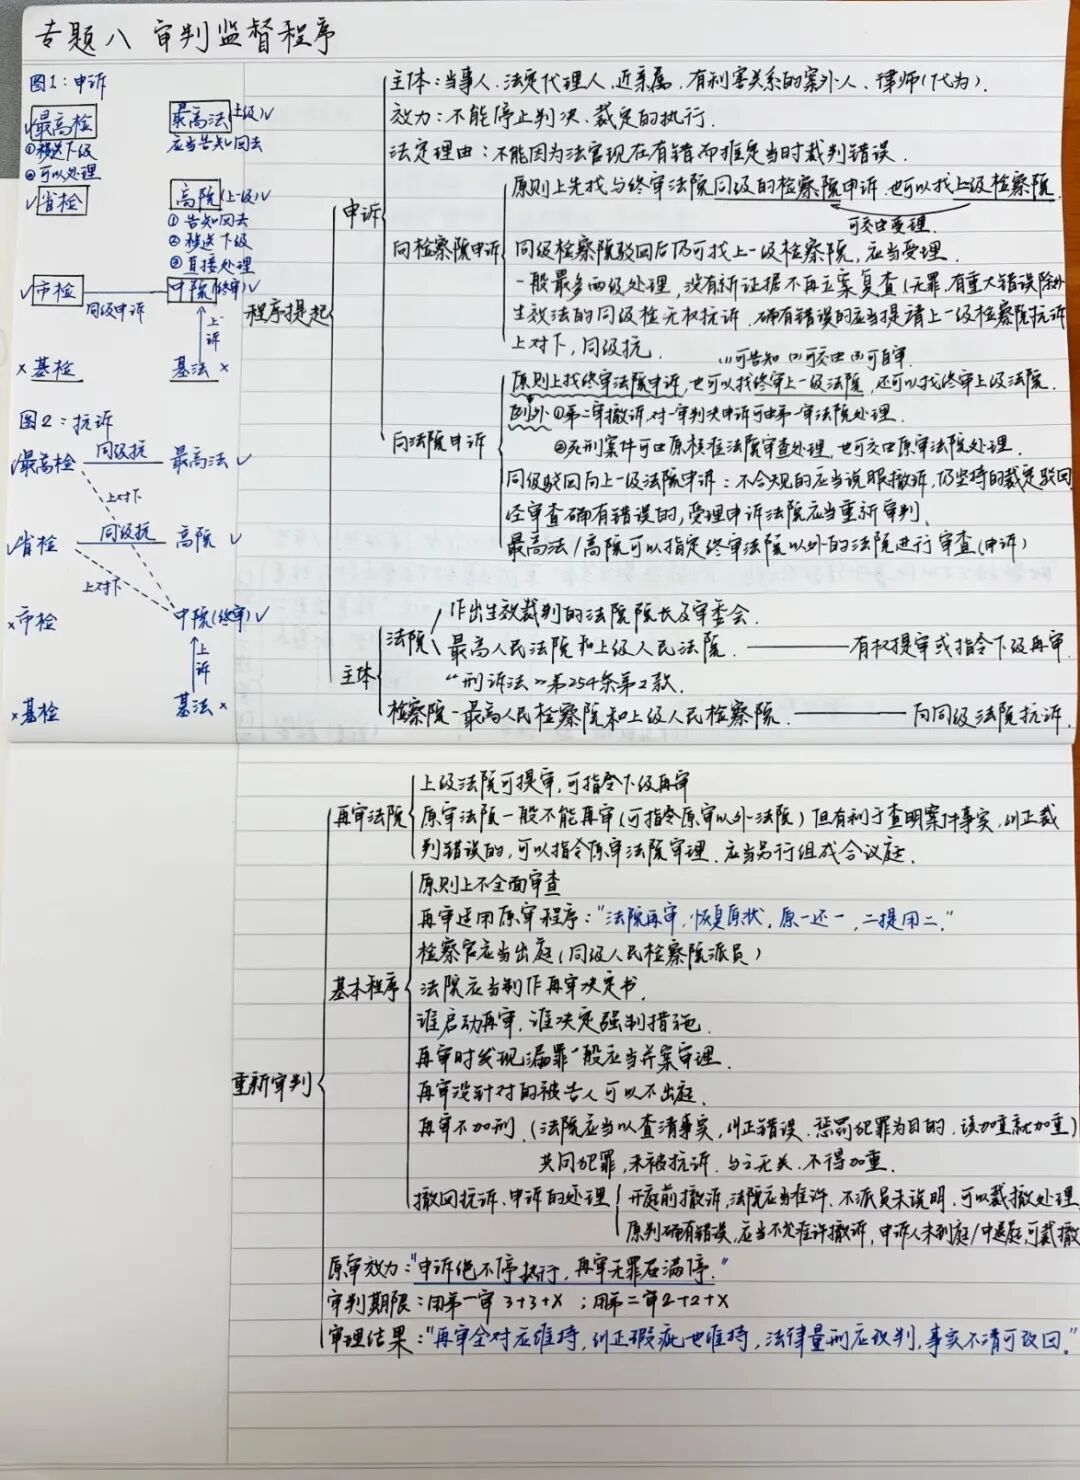 专题八 审判监督程序
图1：申诉
√最高检
①移送下级
②可以处理
最高法(上级)√
应当告知回去
√省检
高院(上一级)√
①告知回去
②移送下级
③直接处理
√市检
同级申诉
中院(终审)√
上诉
×基检
基法×
图2：抗诉
√最高检
同级抗
最高法√
上对下
√省检
同级抗
高院√
上对下
×市检
中院(终审)√
上诉
×基检
基法×
程序提起
申诉
主体：当事人、法定代理人、近亲属，有利害关系的案外人、律师(代为)．
效力：不能停止判决、裁定的执行．
法定理由：不能因为法官现在有错而推定当时裁判错误．
向检察院申诉
原则上先找与终审法院同级的检察院申诉 也可以找上级检察院．
可交由受理．
同级检察院驳回后仍可找上一级检察院，应当受理．
一般最多两级处理，没有新证据不再立案复查(无罪，有重大错误除外
生效法的同级检无权抗诉．确有错误的应当提请上一级检察院抗诉
上对下，同级抗．
(1)可告知 (2)可交由 (3)可自审
向法院申诉
原则上找终审法院申诉，也可以找终审上一级法院，还可以找终审上级法院．
例外①第二审撤诉，对一审判决申诉可由第一审法院处理．
②死刑案件可由原核准法院审查处理，也可交由原审法院处理．
同级驳回向上一级法院申诉：不合规的应当说服撤诉，仍坚持的裁定驳回
经审查确有错误的，受理申诉法院应当重新审判．
最高法/高院可以指定终审法院以外的法院进行审查(申诉)
主体
法院
作出生效裁判的法院院长及审委会．
最高人民法院和上级人民法院．——有权提审或指令下级再审．
“刑诉法”第254条第2款．
检察院－最高人民检察院和上级人民检察院．——向同级法院抗诉．
重新审判
再审法院
上级法院可提审，可指令下级再审
原审法院一般不能再审(可指令原审以外法院)但有利于查明案件事实，纠正裁
判错误的，可以指令原审法院审理．应当另行组成合议庭．
基本程序
原则上不全面审查
再审适用原审程序：“法院再审，恢复原状，原一还一，二提用二．”
检察官应当出庭(同级人民检察院派员)
法院应当制作再审决定书．
谁启动再审，谁决定强制措施．
再审时发现漏罪一般应当并案审理．
再审没针对的被告人可以不出庭．
再审不加刑．(法院应当以查清事实，纠正错误．惩罚犯罪为目的，该加重就加重)
共同犯罪，未被抗诉．与之无关．不得加重．
撤回抗诉、申诉的处理
开庭前撤诉，法院应当准许．不派员未说明，可以裁撤处理
原判确有错误，应当不允准许撤诉，申诉人未到庭/中退庭，可裁撤
原审效力：“申诉绝不停执行，再审无罪在满停．”
审判期限：用第一审 3+3+X ；用第二审2+2+X
审理结果：“再审全对应维持，纠正瑕疵也维持，法律量刑应改判，事实不清可改回．”